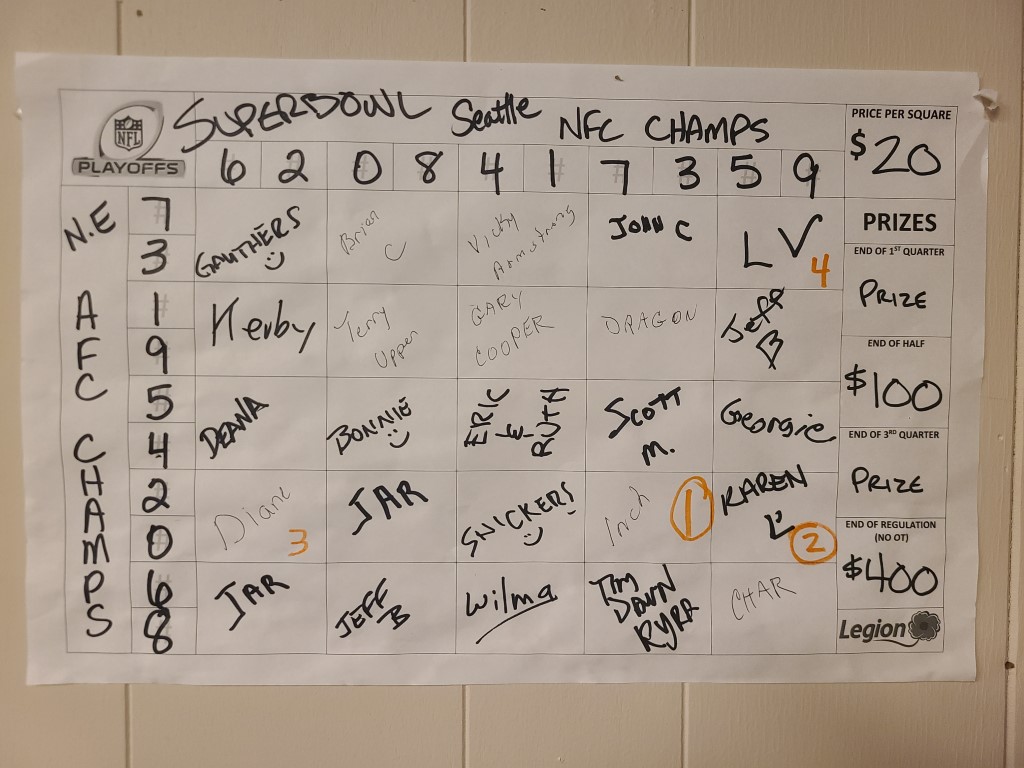 NFL
PLAYOFFS
SUPERBOWL Seattle NFC CHAMPS
PRICE PER SQUARE
$20
6 2 0 8 4 1 7 3 5 9
N.E
AFC
CHAMPS
7
3
1
9
5
4
2
0
6
8
GAUTHERS
Brian C
Vicky Armstrong
JOHN C
LV
4
Kerby
Terry Upper
GARY COOPER
DRAGON
Jeff B
DEANA
BONNIE
ERIC & RUTH
SCOTT M.
Georgie
Diane
3
JAR
SNICKERS
Inch
1
KAREN
2
JAR
JEFF B
Wilma
TIM DAWN
CHAR
PRIZES
END OF 1ST QUARTER
PRIZE
END OF HALF
$100
END OF 3RD QUARTER
PRIZE
END OF REGULATION
(NO OT)
$400
Legion